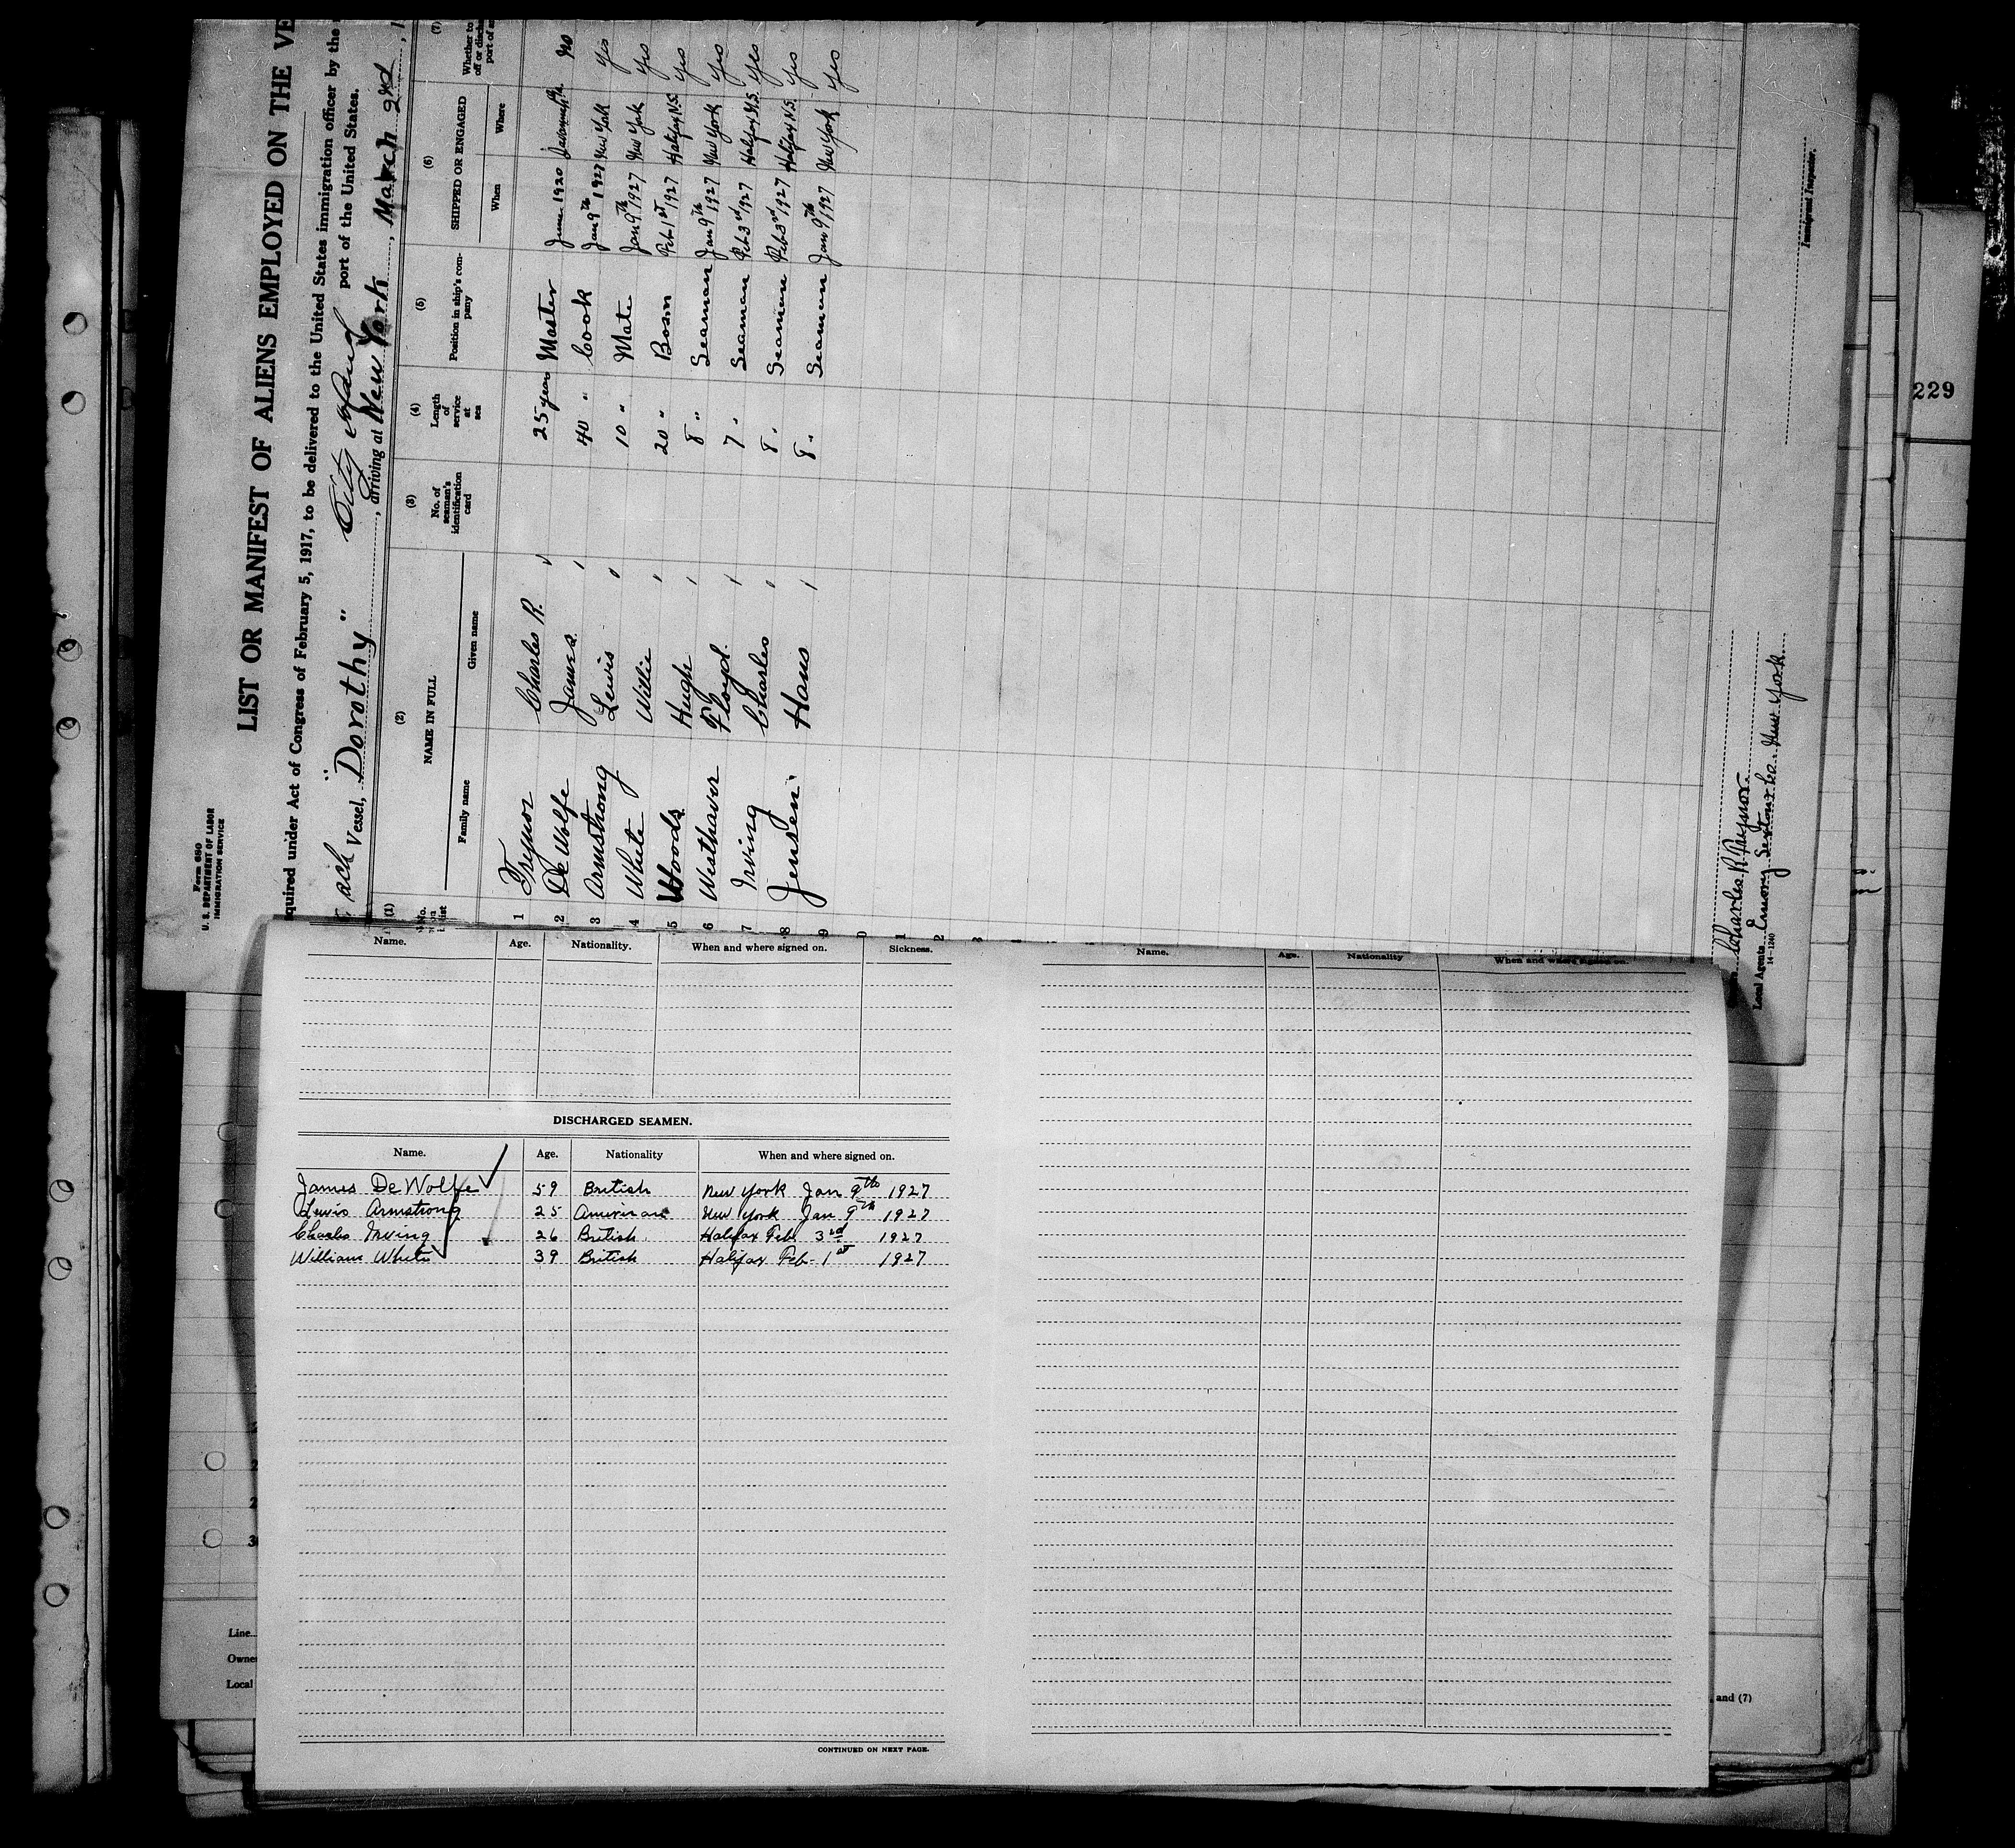 Form 680
U. S. DEPARTMENT OF LABOR
IMMIGRATION SERVICE
LIST OR MANIFEST OF ALIENS EMPLOYED ON THE VE
quired under Act of Congress of February 5, 1917, to be delivered to the United States immigration officer by the
port of the United States.
Vessel, "Dorothy" City Island, arriving at New York, March 2nd, 1
(1) (2) (3) (4) (5) (6) (7)
No. on list NAME IN FULL No. of seaman's identification card Length of service at sea Position in ship's company SHIPPED OR ENGAGED Whether to
off or disch
port of a
Family name Given name When Where
1 Trynor Charles R. 25 years Master June 1920 No
2 De Wolfe James 40 " Cook Jan 9th 1927 New York Yes
3 Armstrong Lewis 10 " Mate Jan 9th 1927 New York Yes
4 White Willie 20 " Bosn Feb 1st 1927 Halifax N.S. Yes
5 Woods Hugh 8 " Seaman Jan 9th 1927 New York Yes
6 Westhaver Floyd 7 " Seaman Feb 3rd 1927 Halifax N.S. Yes
7 Irving Charles 8 " Seaman Feb 3rd 1927 Halifax N.S. Yes
8 Jensen Hans 8 " Seaman Jan 9th 1927 New York Yes
9
0
1
2
Charles R. Trynor
Local Agents New York
14-1240
Immigrant Inspector.
229
Name. Age. Nationality. When and where signed on. Sickness.
Name. Age. Nationality When and where signed on.
DISCHARGED SEAMEN.
Name. Age. Nationality When and where signed on.
James De Wolfe 59 British New York Jan 9th 1927
Lewis Armstrong 25 American New York Jan 9th 1927
Charles Irving 26 British Halifax Feb 3rd 1927
William White 39 British Halifax Feb. 1st 1927
CONTINUED ON NEXT PAGE.
Line
Owne
Local
and (7)